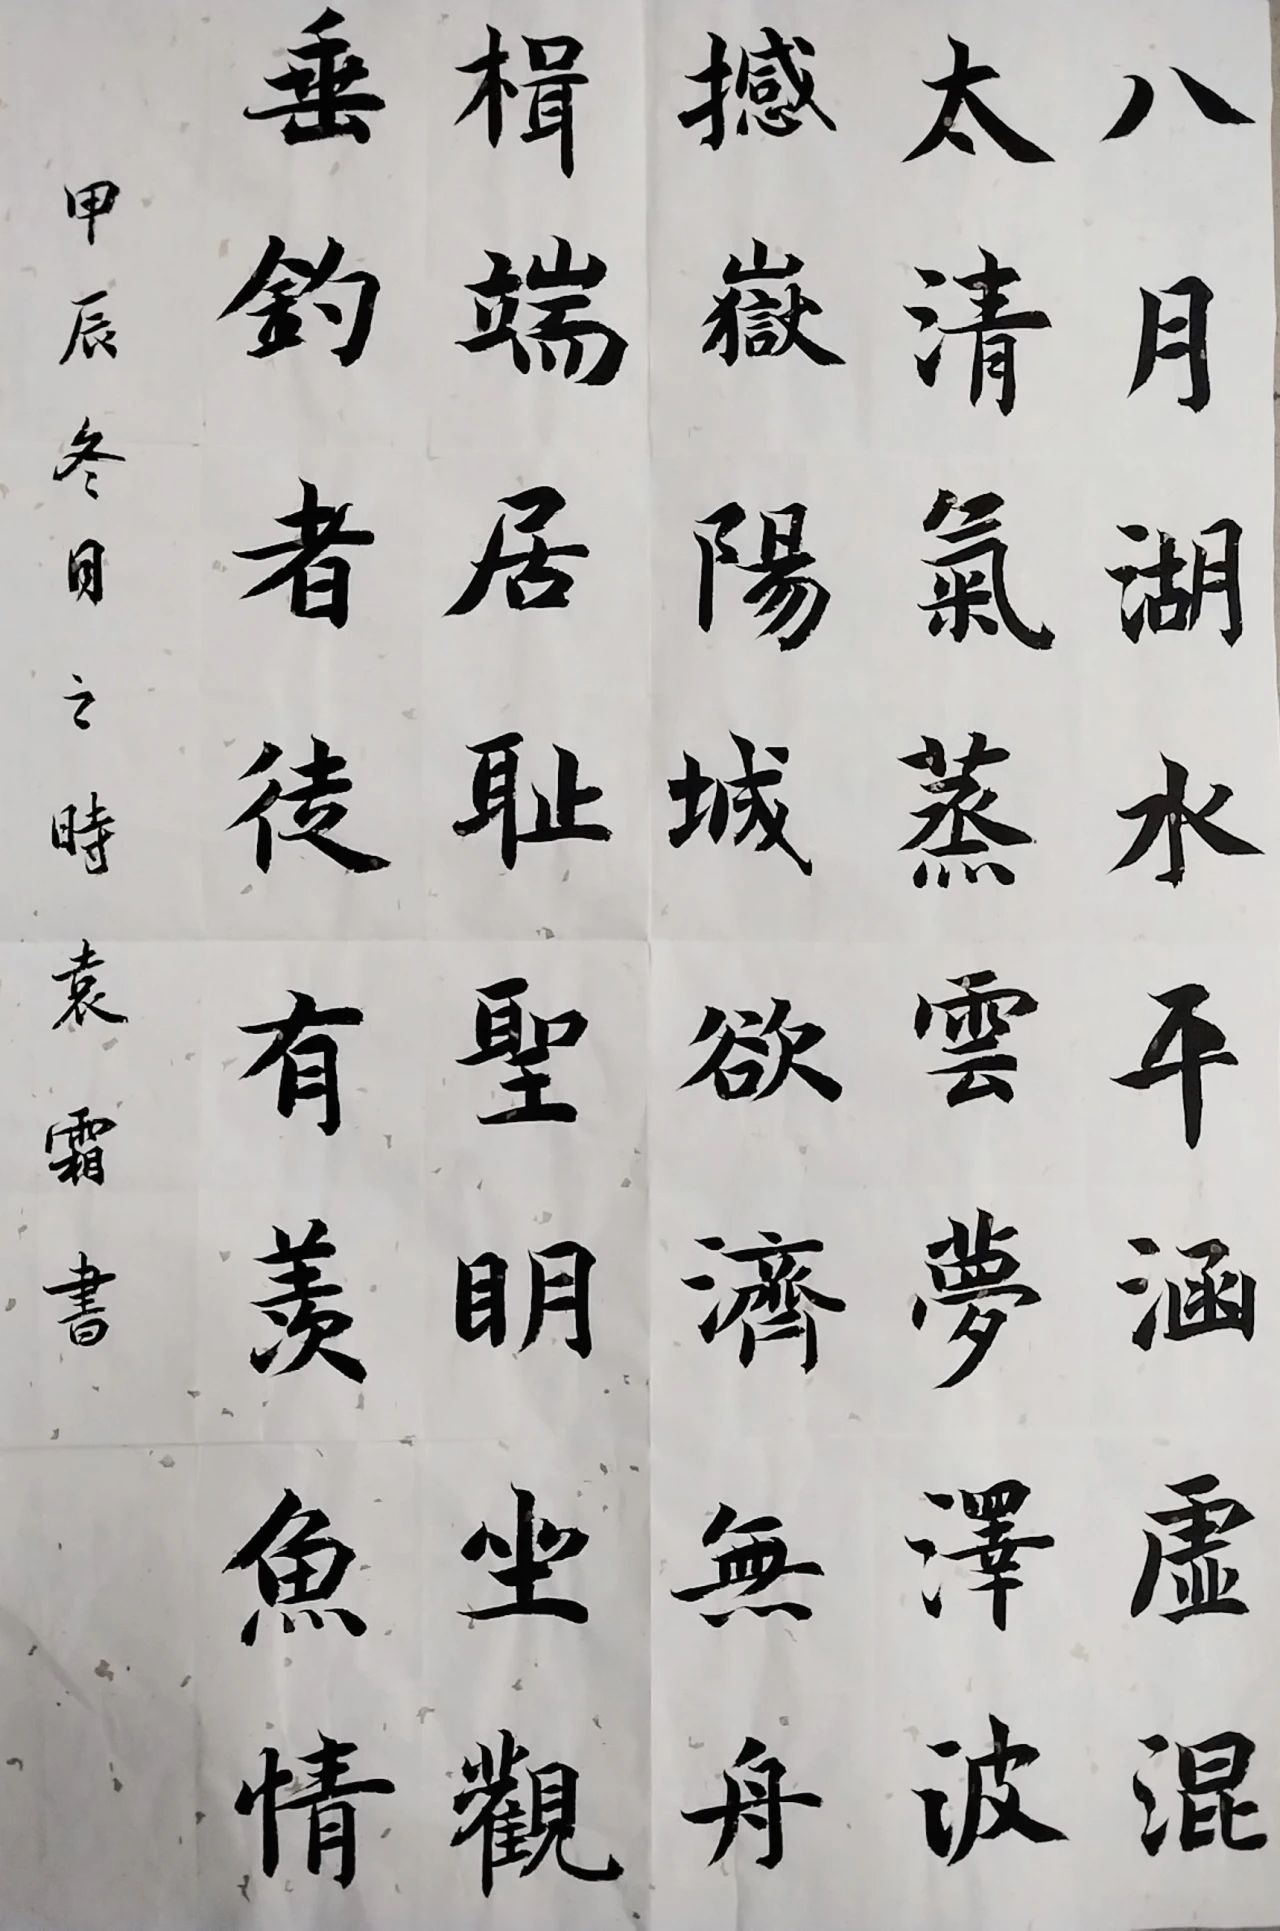 八月湖水平涵虛混
太清氣蒸雲夢澤波
撼嶽陽城欲濟無舟
楫端居耻聖明坐觀
垂釣者徒有羨魚情
甲辰冬月之時袁霜書